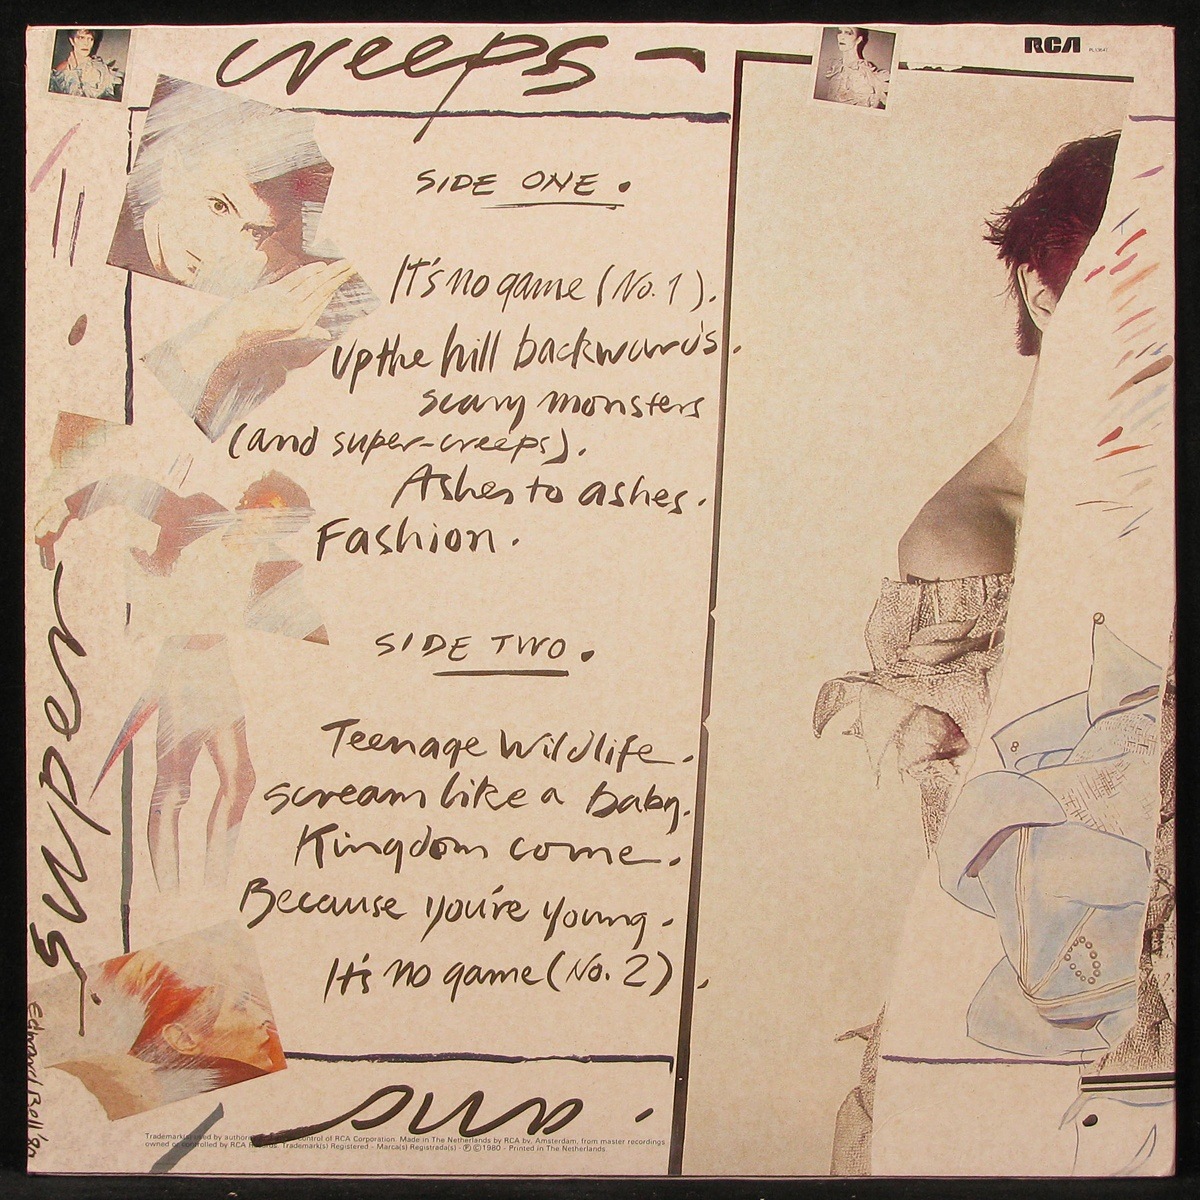 creeps -
RCA
SIDE ONE.
It's no game (No. 1).
Up the hill backwards.
scary monsters
(and super-creeps).
Ashes to ashes.
Fashion.
SIDE TWO.
Teenage Wildlife.
scream like a Baby.
Kingdom come.
Because you're young.
It's no game (No. 2).
super
Edward Bell '80
Trademark(s) used by authority control of RCA Corporation. Made in The Netherlands by RCA bv, Amsterdam, from master recordings
owned or controlled by RCA Records. Trademark(s) Registered - Marca(s) Registrada(s) - ℗ © 1980 - Printed in The Netherlands